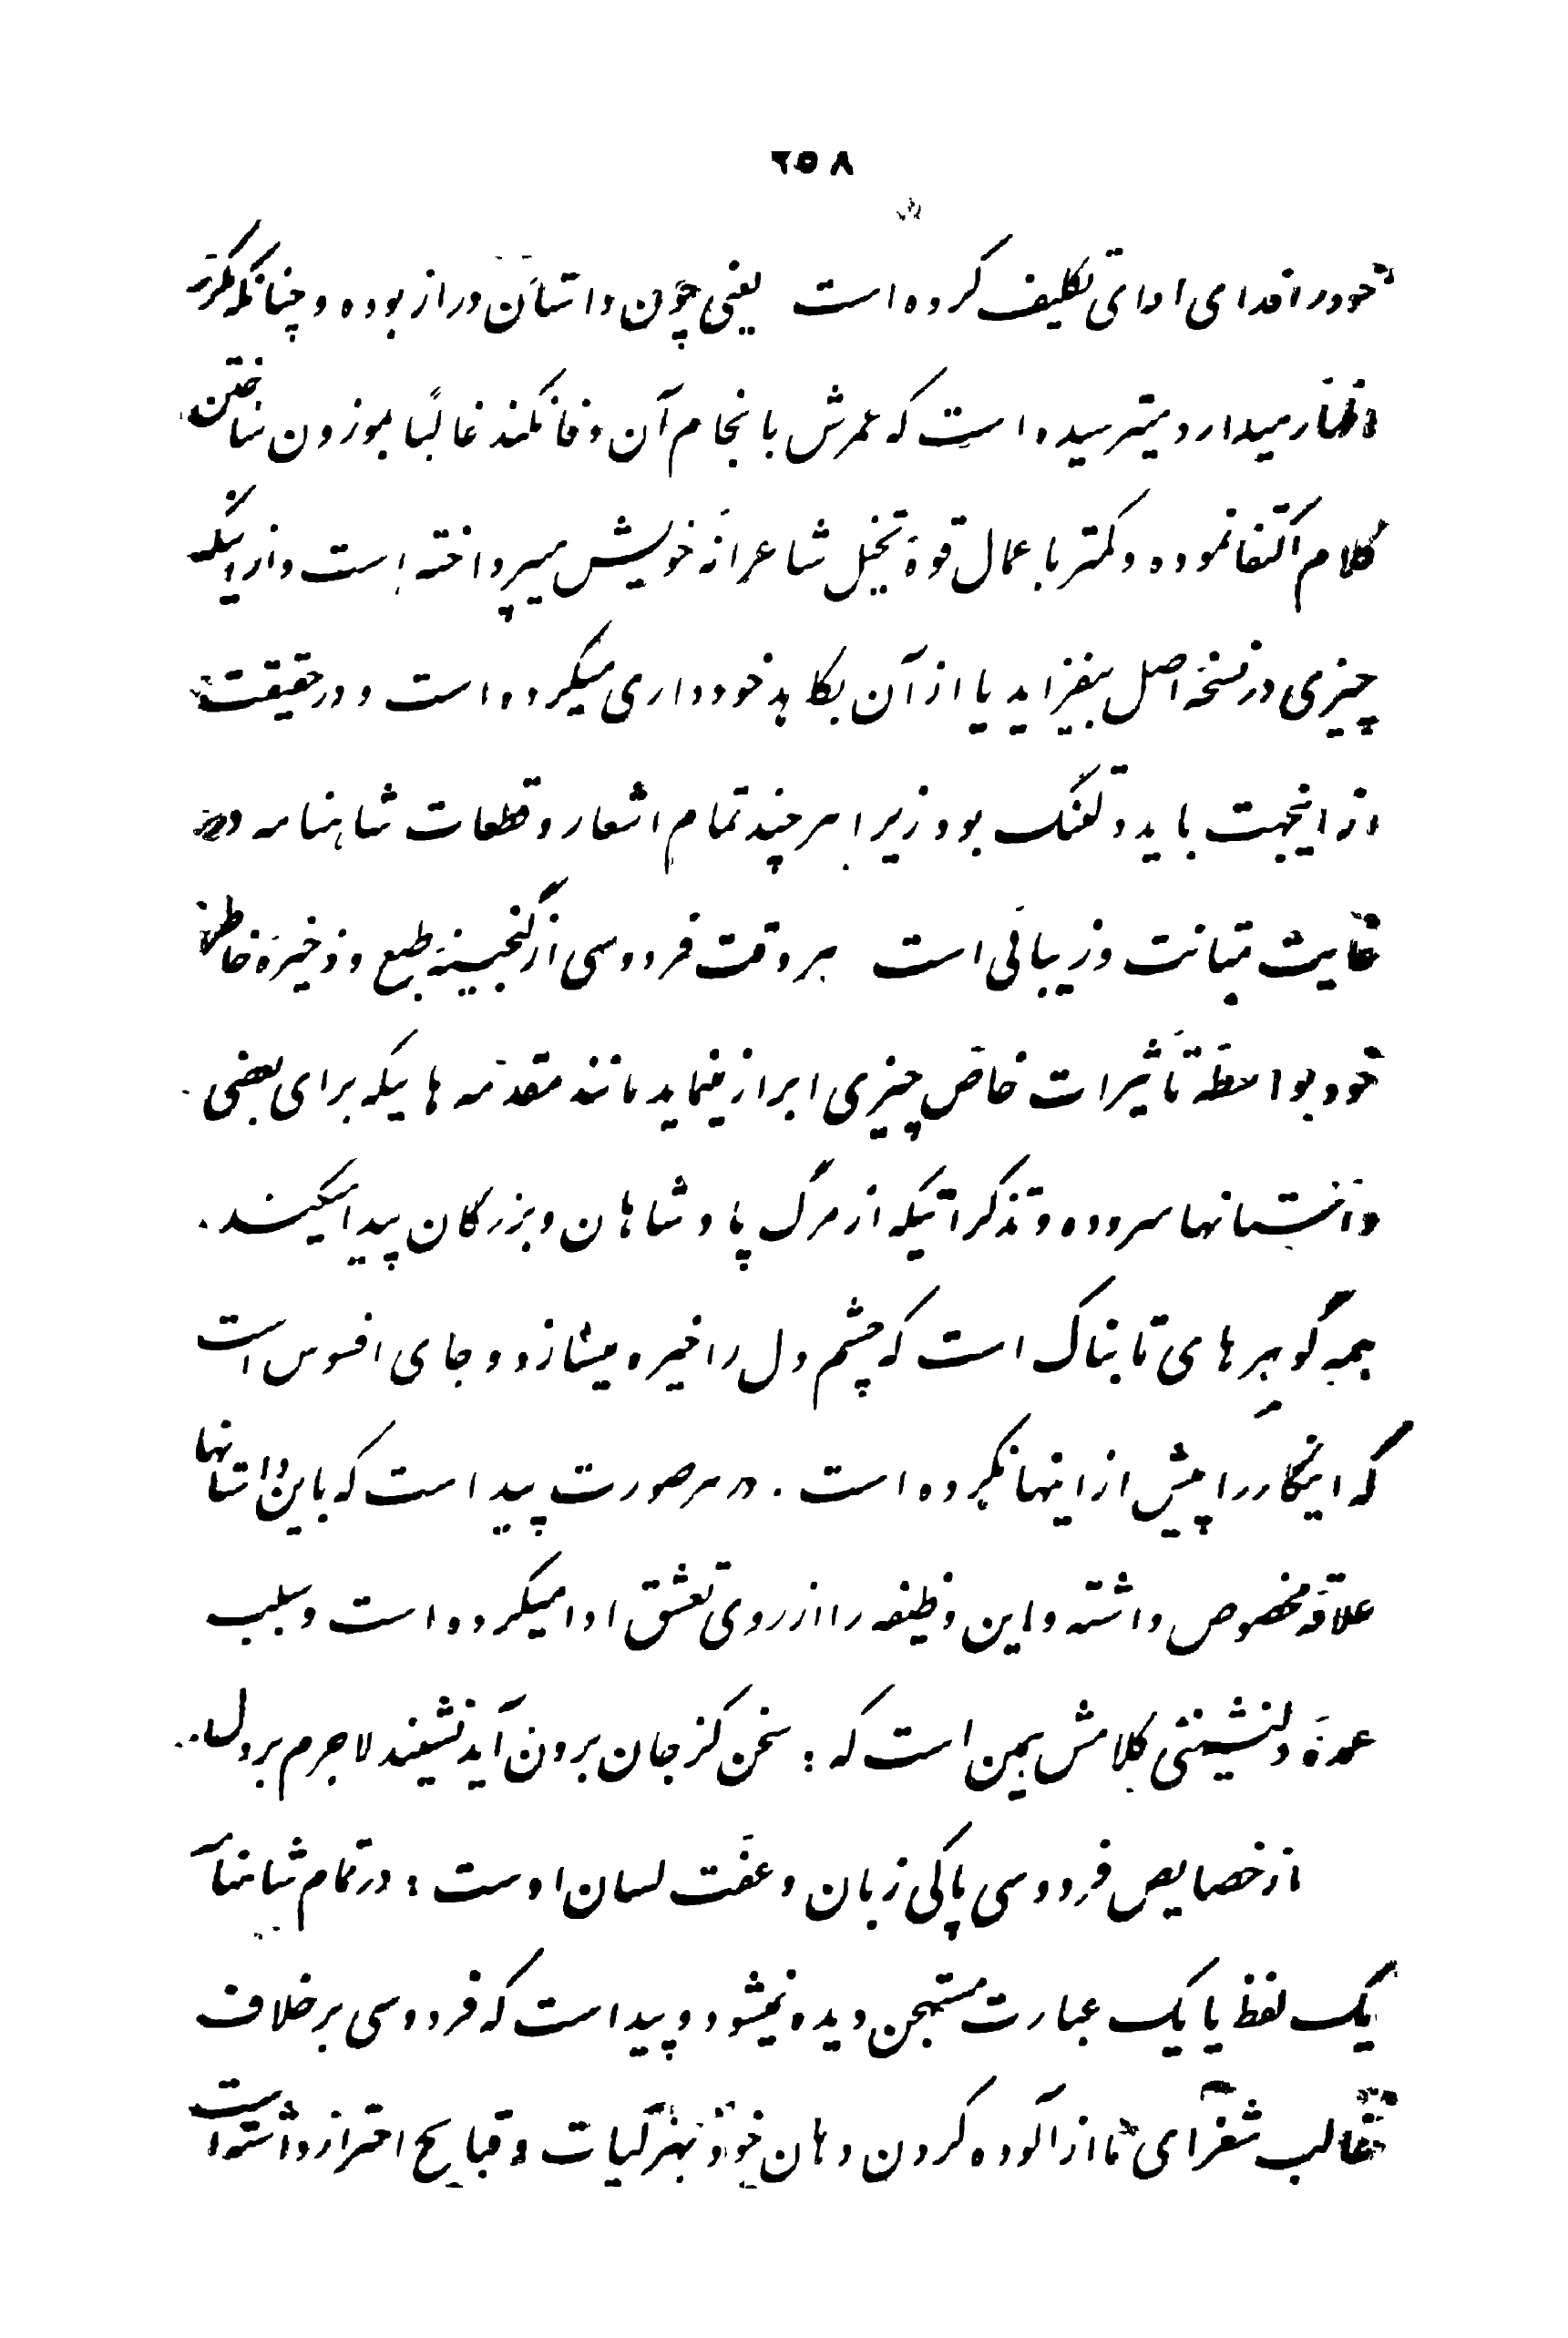 ۲۵۸
خود را فدای ادای تکلیف کرده است یعنی چون داستان دراز بوده و چنانکه مکرر
اظهار میدارد میترسیده است که عمرش بانجام آن وفا نکند غالبًا بموزون ساختن
کلام اکتفا نموده و کمتر باعمال قوهٔ تخیل شاعرانهٔ خویش میپرداخته است و از اینکه
چیزی در نسخهٔ اصل بیفزاید یا از آن بکاهد خودداری میکرده است و در حقیقت
از اینجهت باید دلتنگ بود زیرا هر چند تمام اشعار و قطعات شاهنامه در
غایت متانت و زیبائی است هر وقت فردوسی از گنجینهٔ طبع و ذخیرهٔ خاطر
خود بواسطهٔ تأثیرات خاص چیزی ابراز مینماید مانند مقدمه هائیکه برای بعضی
داستانها سروده و تذکراتیکه از مرگ پادشاهان و بزرگان پیدا میکند.
همه گوهرهای تابناک است که چشم دل را خیره میسازد و جای افسوس است
که اینکار را بیش از اینها نکرده است. در هر صورت پیداست که باین داستانها
علاقهٔ مخصوص داشته و این وظیفه را از روی تعشق ادا میکرده است و سبب
عمدهٔ دلنشینی کلامش همین است که : سخن کز جان برون آید نشیند لاجرم بر دل..
از خصایص فردوسی پاکی زبان و عفت لسان اوست ؛ در تمام شاهنامه
یک لفظ یا یک عبارت مستهجن دیده نمیشود و پیداست که فردوسی بر خلاف
غالب شعرای ما از آلوده کردن دهان خود بهزلیات و قبایح احتراز داشته است